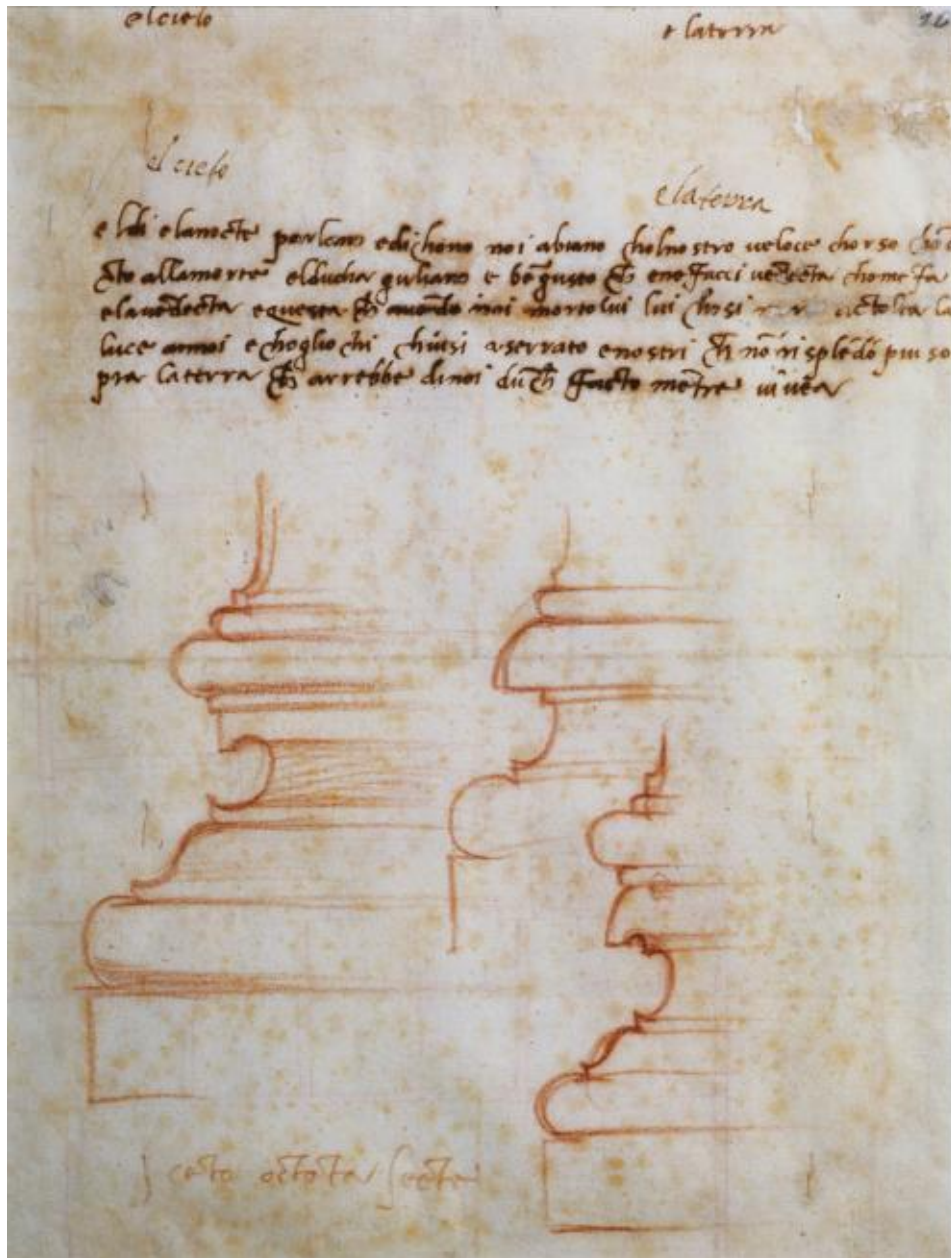 el cielo e la terra 16
el cielo
e la terra
el di e la nocte parlano e dichono noi abiano chol nostro veloce chorso chō
docto alla morte el ducha guliano e bē gusto ch̄ e ne facci vēdecta chome fa
e la vēdecta e questa ch̄ avendo noi morto lui lui chosi a tolta la
luce a noi e chogli ochi chiusi a serrato e nostri ch̄ nō risplēdō piu so
pra la terra ch̄ arrebbe di noi dūch̄ facto mētre vivea
cēto octāta secte